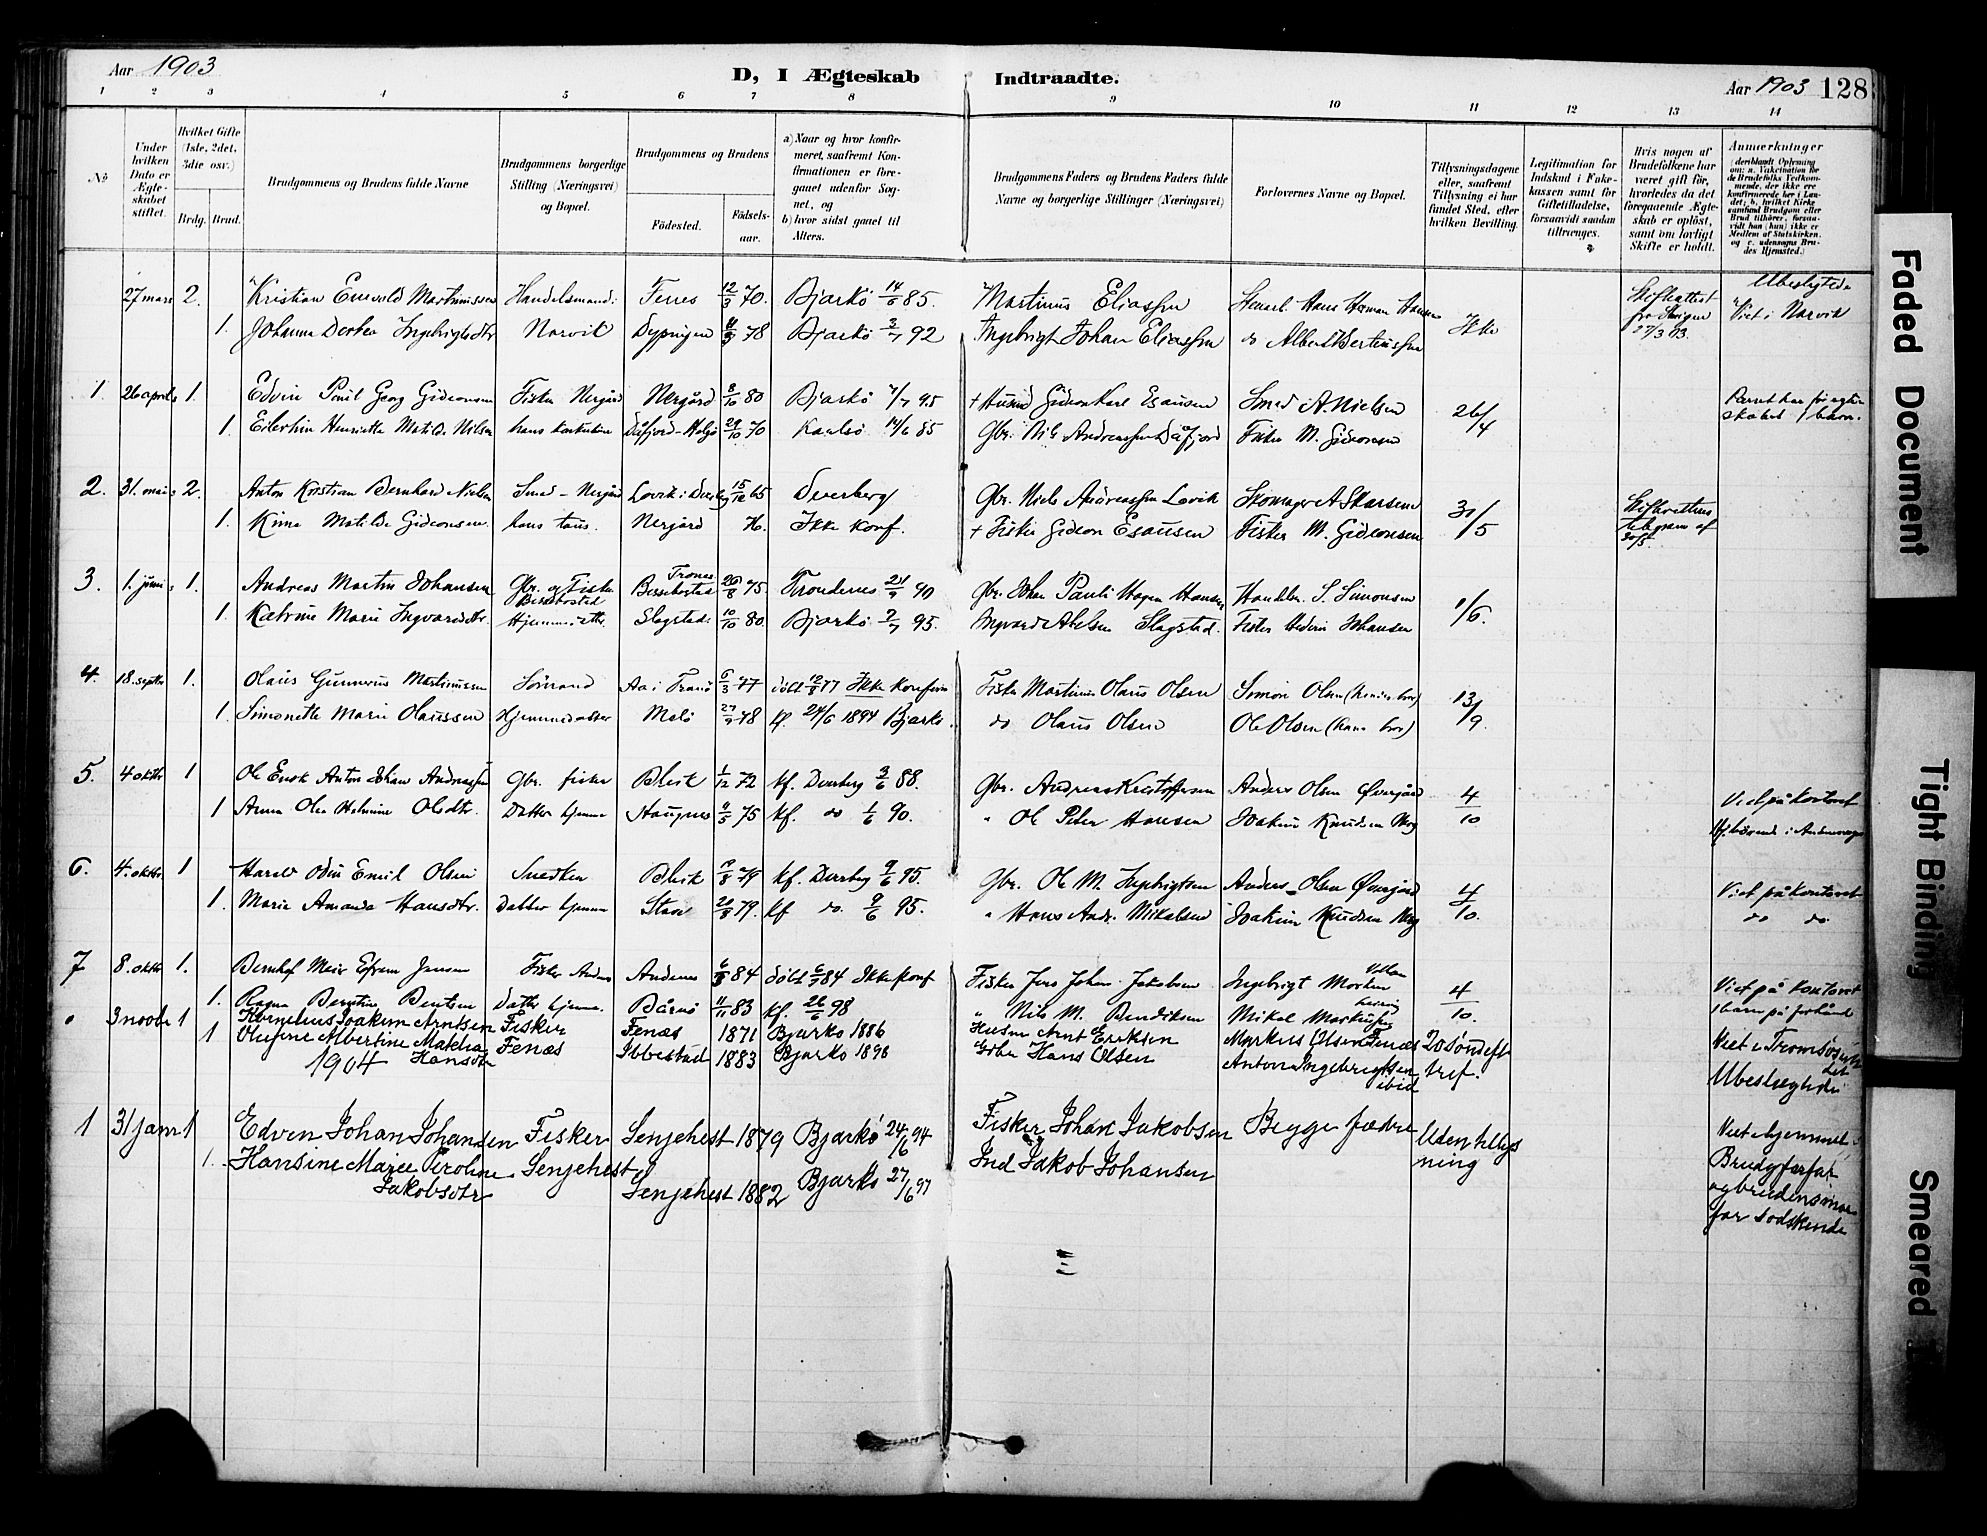 Aar 1903
D, I Ægteskab Indtraadte.
Aar 1903 128
1 2 3 4 5 6 7 8 9 10 11 12 13 14
No
Under hvilken Dato er Ægteskabet stiftet.
Hvilket Gifte (1ste, 2det, 3die osv.)
Brdg. Brud.
Brudgommens og Brudens fulde Navne
Brudgommens borgerlige Stilling (Næringsvei) og Bopæl.
Brudgommens og Brudens
Fødested. Fødsels-aar.
a) Naar og hvor konfirmeret, saafremt Konfirmationen er foregaaet udenfor Sognet, og
b) hvor sidst gaaet til Alters.
Brudgommens Faders og Brudens Faders fulde Navne og borgerlige Stillinger (Næringsvei)
Forlovernes Navne og Bopæl.
Tillysningsdagene eller, saafremt Tillysning ei har fundet Sted, efter hvilken Bevilling.
Legitimation for Indskud i Enkekassen samt for Giftetilladelse, forsaavidt saadan tiltrænges.
Hvis nogen af Brudefolkene har været gift før, hvorledes da det foregaaende Ægteskab er opløst, samt om lovligt Skifte er holdt.
Anmerkninger
27 mars 2. Kristian Enevold Martinussen Handelsmand: Fenes 12/3 70. Bjarkö 14/6 85. Martinus Eliassen Hans Herman Hansen Ubeslegtede
1. Johanna Dorkea Ingebrigtsdtr Narvik Dypingen 78 Bjarkö 92 Ingebrigt Johan Eliassen do Albert Bertinussen Ikke 27/3 03. Viet i Narvik
1. 26 april 1. Edvin Georg Gideonsen Fisker Nergård Nergård 8/10 80 Bjarkö 95 + Gideon Karl Esausen Smed A. Nielsen 26/4
1. Henriette Matilde Nilsen 29/10 70 Karlsö 14/6 85 Gbr. Nils Andreassen Dåfjord Fisker M. Gideonsen
2. 31. mai 2. Anton Kristian Bernhard Nielsen Smed - Nergård Lovik i Dverberg 15/12 65 Dverberg Gbr. Niels Andreassen Lovik Skomager A. Skarsem 31/5
1. Kima Matilde Gideonsen. hans taus. Nergård 76. Ikke konf. + Fisker Gideon Esausen Fisker M. Gideonsen telegram af 30/5
3. 1. juni 1. Andreas Martin Johansen Gbr. og Fisker Bessebostad Trones Bessebostad 26/8 75. Trondenes 90 Gbr. Johan Pauli Hagen Hansen Handelsm. S. Simonsen 1/6.
1. Katrine Marie Ingvardsdtr. Hjemmedtr. Slagstad 10/10 80. Bjarkö 95. Ingvard Abelsen Slagsted. Fisker Johansen
4. 18. septbr 1. Olaus Gunnerus Martinussen Sömand Aa i Tranö 6/3 77 döbt 77 Ikke konfirm Fisker Martinus Olaus Olsen Simon Olsen 13/9
1. Simonette Marie Olaussen Hjemmedatter Melö 78 kf. 24/6 1894 Bjarkö. do Olaus Olsen Ole Olsen (hans bror)
5. 4 oktbr 1 Ole Enok Anton Johan Andreassen Gbr. fisker Bleik 1/12 72 kf. Dverberg 3/6 88. Gbr. Andreas Kristoffersen Anders Olsen Övergård 4/10 Viet på kontoret
1 Anna Olea Olsdtr. Datter hjemme Haugnes 75 kf. do 1/6 90. " Ole Peter Hansen Joakim Knudsen
6. 4. oktbr. 1 Harald Odin Emil Olsen Snedker Bleik 79 kf. Dverberg 9/6 95. Gbr. Ole M. Ingebrigtsen Anders Olsen Övergård 4/10. Viet på kontoret
1. Marie Amanda Hansdtr. Datter hjemme Stave 79. kf do. 9/6 95. " Hans Andr. Mikalsen Joakim Knudsen do do.
7 8. oktbr 1. Bernhof Meier Efraim Jensen Fisker Andenes Andenes 84 döbt 84 Ikke konf Fisker Jens Johan Jakobsen Ingebrigt Morten 4/10. Viet på kontoret
1. Ragna Berntine Bentsen Datter hjemme. Dåsnö 11/11 83 kf. 26/6 98 " Nils M. Bendiksen Mikal Markussen 1 barn på forhånd
3 novbr 1 Kornelius Joakim Arntsen Fisker Fenæs 1871 Bjarkö 1886 Husm Arnt Eriksen Markus Olsen Fenæs 20 Sönd eft tref. Viet i Tromsösundet
1 Olufine Albertine Mathea Hansdtr Fenæs Ibbestad 1883 Bjarkö 1898 Gbr Hans Olsen Anton Ingebrigtsen ibid Ubeslegtede
1904
1 31 janr 1 Edven Johan Johansen Fisker Senjehest 1879 Bjarkö 24/6 94 Fisker Johan Jakobsen Begge fædre Uden tillysning Viet i hjemmet
1. Hansine Marie Peroline Jakobsdtr Senjehest Senjehest 1882 Bjarkö 27/6 97 Ind Jakob Johansen Brudg farfar og brudens morfar sødskende
Faded Document
Tight Binding
Smeared